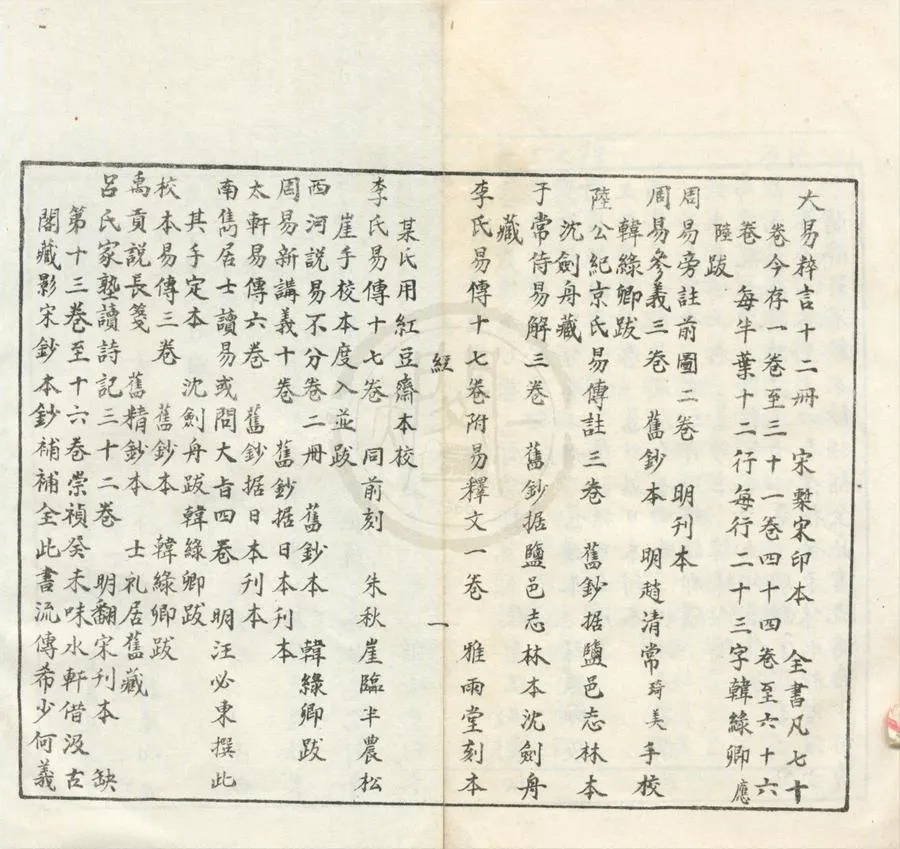 大易粹言十二冊 宋槧宋印本 全書凡七十
卷今存一卷至三十一卷四十四卷至六十六
卷 每半葉十二行每行二十三字韓綠卿應
陸跋
周易旁註前圖二卷 明刊本
周易參義三卷 舊鈔本 明趙清常琦美手校
韓綠卿跋
陸公紀京氏易傳註三卷 舊鈔据鹽邑志林本
沈劍舟藏
于常侍易解三卷 舊鈔据鹽邑志林本沈劍舟
藏
李氏易傳十七卷附易釋文一卷 雅雨堂刻本
經 一
某氏用紅豆齋本校
李氏易傳十七卷 同前刻 朱秋崖臨半農松
崖手校本度入並跋
西河說易不分卷二冊 舊鈔本 韓綠卿跋
周易新講義十卷 舊鈔据日本刊本
太軒易傳六卷 舊鈔据日本刊本
南雋居士讀易或問大旨四卷 明汪必東撰此
其手定本 沈劍舟跋韓綠卿跋
校本易傳三卷 舊鈔本 韓綠卿跋
禹貢說長箋 舊精鈔本 士礼居舊藏
呂氏家塾讀詩記三十二卷 明翻宋刊本 缺
第十三卷至十六卷崇禎癸未味水軒借汲古
閣藏影宋鈔本鈔補補全此書流傳希少何義